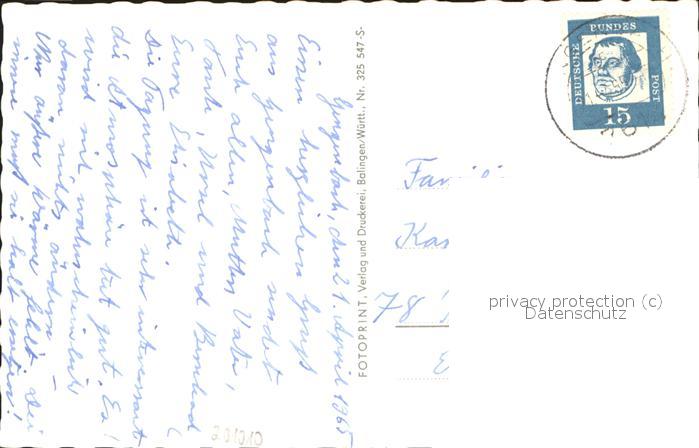 Gengenbach, den 21. April 1965
Einen herzlichen Gruß
aus Gengenbach sendet
Euch allen, Mutter, Vater,
Tante, Ursel und Bernhard
Eure Elisabeth.
Die Tagung ist sehr interessant
die Atmosphäre tut gut. Es
wird mit wahrscheinlich
daran nichts ändern –
Nur äußere Wärme fehlt, die
innere muß sie halt ersetzen!
FOTOPRINT, Verlag und Druckerei, Balingen/Württ., Nr. 325 547 -S-
DEUTSCHE BUNDES POST
15
Fam
Kas
78
privacy protection (c)
Datenschutz